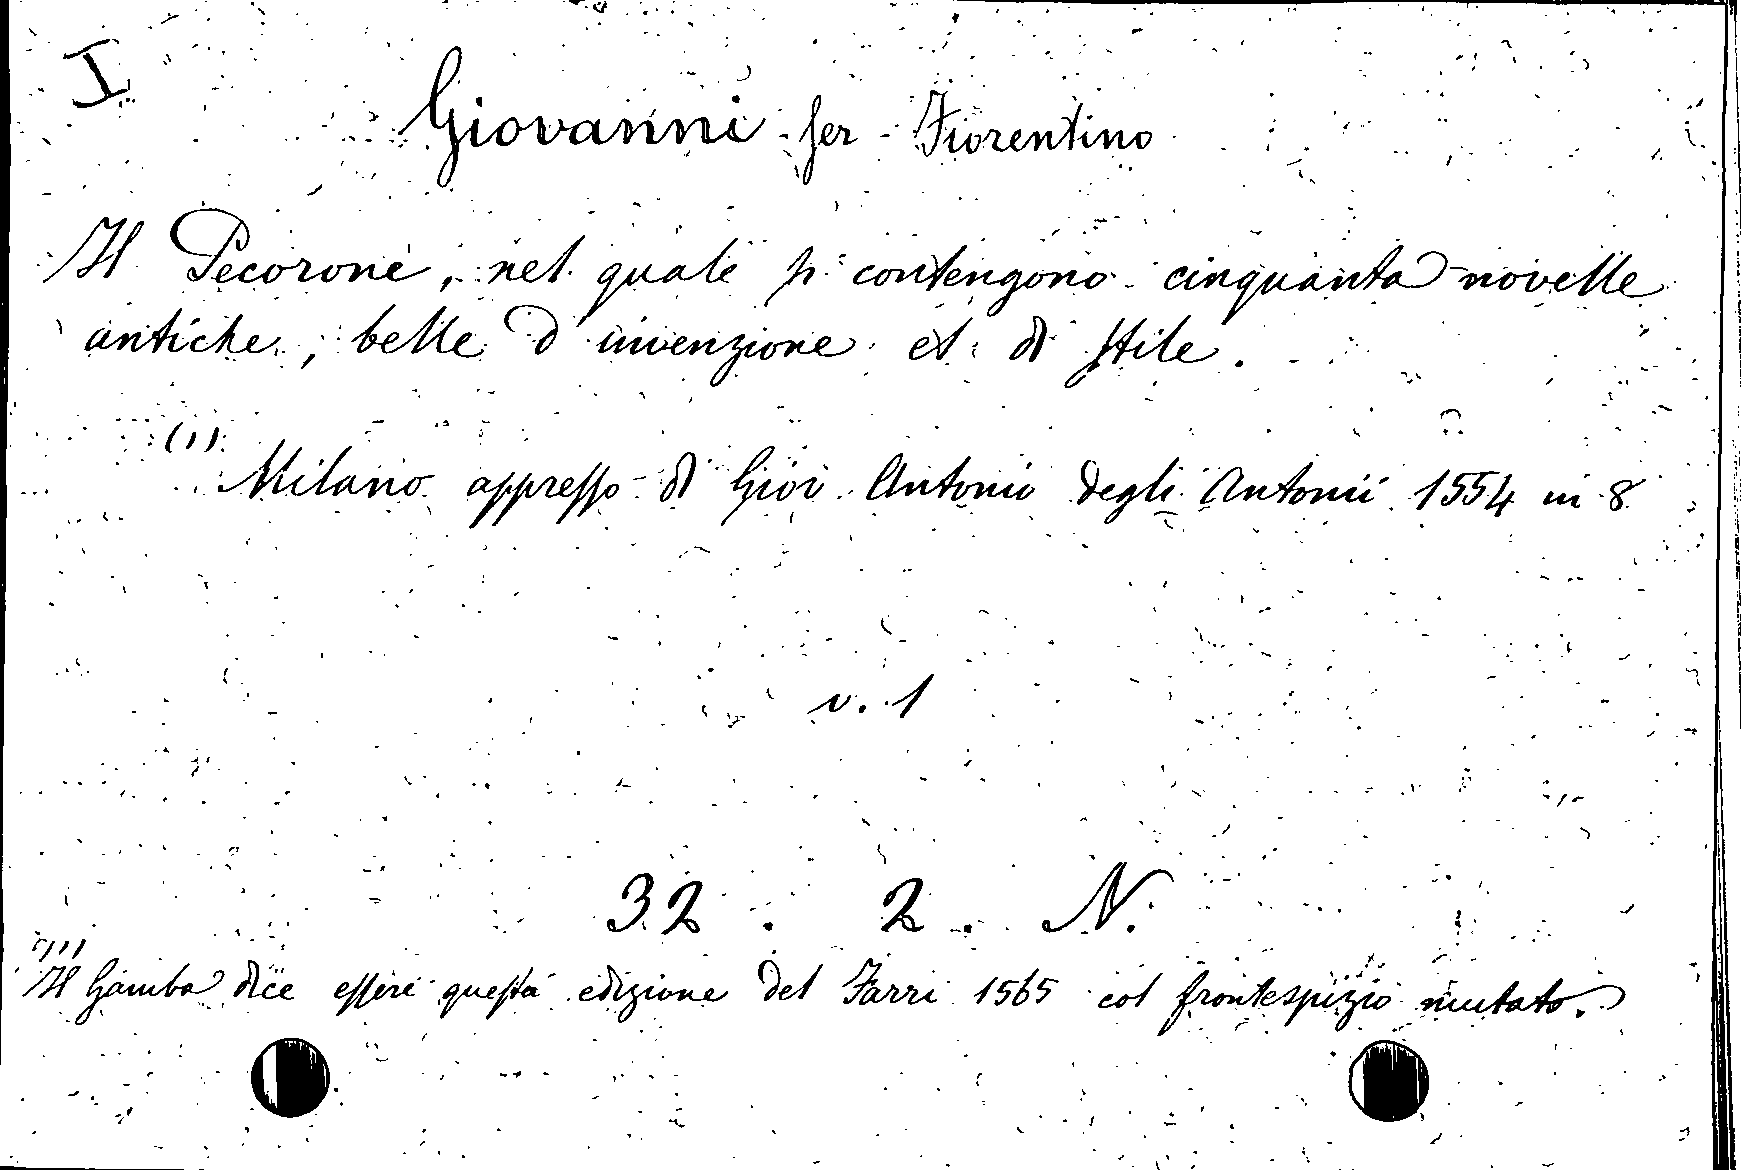 I
Giovanni ser Fiorentino
Il Pecorone, nel quale si contengono cinquanta novelle
antiche, belle d invenzione et di stile.
(1) Milano appresso di Giov. Antonio degli Antonii 1554 in 8
v. 1
32 . 2 . N.
(1) Il Gamba dice essere questa edizione del Farri 1565 col frontespizio mutato.